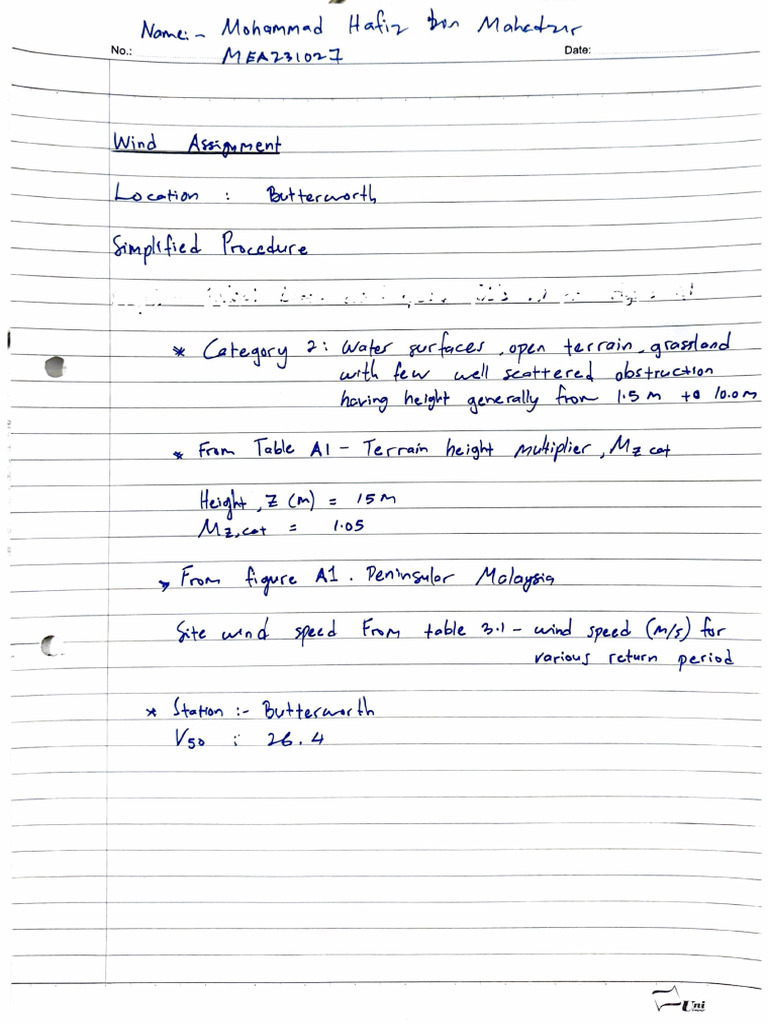 Name:- Mohammad Hafiz bin Mahadzir
No.: MEA231027 Date:
Wind Assignment
Location : Butterworth
Simplified Procedure
* Category 2: Water surfaces, open terrain, grassland
with few well scattered obstruction
having height generally from 1.5 m to 10.0 m
* From Table A1 - Terrain height multiplier, Mz cat
Height, Z (m) = 15 m
Mz,cat = 1.05
* From figure A1. Peninsular Malaysia
Site wind speed From table 3.1 - wind speed (m/s) for
various return period
* Station :- Butterworth
V50 : 26.4
Uni